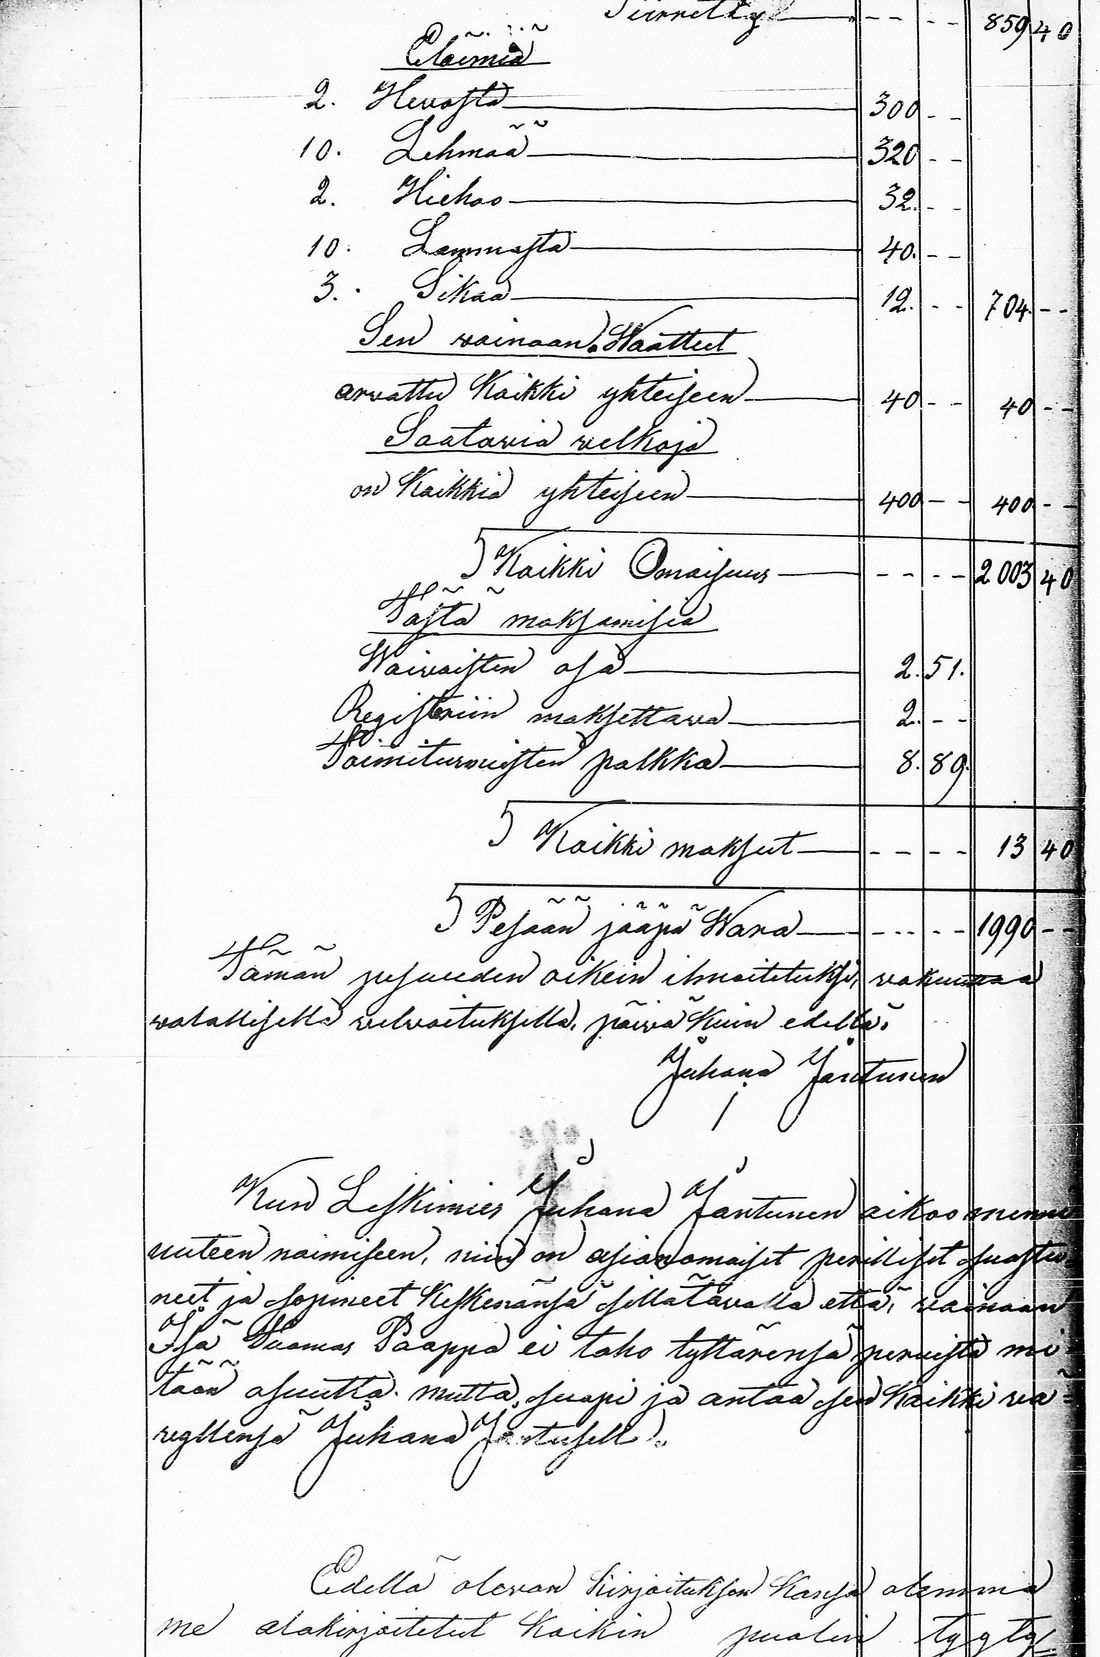 Siirretty - - - - 859 40
Eläimiä
2. Hevosta 300 - -
10. Lehmää 320 - -
2. Hiehoo 32. - -
10. Lammasta 40. - -
3. Sikaa 12. - - 704 - -
Sen vainaan Waatteet
arvattu Kaikki yhteiseen 40 - - 40 - -
Saatavia velkoja
on Kaikkia yhteiseen 400 - - 400 - -
Kaikki Omaisuus - - - - 2003 40
Tästä maksamisia
Waivaisten osa 2. 51.
Registeriin maksettava 2. - -
Toimitusmiesten palkka 8. 89.
Kaikki maksut - - - - 13 40
Pesään jääpä Wara - - - - 1990 - -
Tämän pesueeden oikein ilmoitetuksi, vakuuttaa
valallisella velvoituksella, päivä Kuin edellä.
Juhana Jantunen
Kun Leskimies Juhana Jantunen aikoo mennä
uuteen naimiseen, niin on asianomaiset perilliset suostu
neet ja sopineet Keskenänsä sillätavalla että, vainaan
Isä Tuomas Paappa ei taho tyttärensä peruista mi
tään osuutta. mutta suapi ja antaa sen Kaikki vä
vyllensä Juhana Jantusell
Edellä olevan Kirjoituksen Kansa olemma
me alakirjoitetut Kaikin puolin tyyty